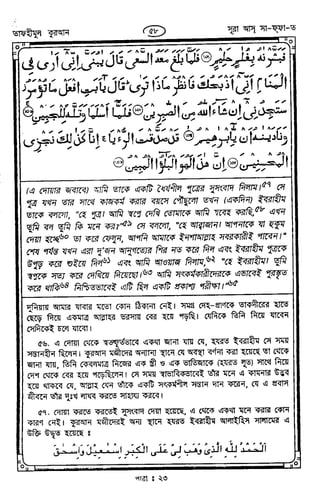 তাফহীমুল কুরআন
৫৮
সূরা আস্ সা-ফ্ফা-ত
فَبَشَّرْنٰهُ بِغُلٰمٍ حَلِيْمٍ فَلَمَّا بَلَغَ مَعَهُ السَّعْيَ قَالَ يٰبُنَيَّ اِنِّيْۤ اَرٰى فِي
الْمَنَامِ اَنِّيْۤ اَذْبَحُكَ فَانْظُرْ مَاذَا تَرٰى قَالَ يٰۤاَبَتِ افْعَلْ مَا تُؤْمَرُ
سَتَجِدُنِيْۤ اِنْ شَآءَ اللّٰهُ مِنَ الصّٰبِرِيْنَ فَلَمَّاۤ اَسْلَمَا وَتَلَّهٗ لِلْجَبِيْنِ
وَنَادَيْنٰهُ اَنْ يّٰۤاِبْرٰهِيْمُ قَدْ صَدَّقْتَ الرُّءْيَا اِنَّا كَذٰلِكَ نَجْزِي
الْمُحْسِنِيْنَ اِنَّ هٰذَا لَهُوَ الْبَلٰٓؤُا الْمُبِيْنُ
(এ দোয়ার জবাবে) আমি তাকে একটি ধৈর্যশীল পুত্রের সুসংবাদ দিলাম।৫৭ সে
পুত্র যখন তার সাথে কাজকর্ম করার বয়সে পৌঁছুলো তখন (একদিন) ইবরাহীম
তাকে বললো, "হে পুত্র! আমি স্বপ্নে দেখি তোমাকে আমি যবেহ করছি,৫৮ এখন
তুমি বল তুমি কি মনে কর?"৫৯ সে বললো, "হে আব্বাজান! আপনাকে যা হুকুম
দেয়া হচ্ছে৬০ তা করে ফেলুন, আপনি আমাকে ইনশাআল্লাহ সবরকারীই পাবেন।"
শেষ পর্যন্ত যখন এরা দু'জন আনুগত্যের শির নত করে দিল এবং ইবরাহীম পুত্রকে
উপুড় করে শুইয়ে দিল৬১ এবং আমি আওয়াজ দিলাম,৬২ "হে ইবরাহীম! তুমি
স্বপ্নকে সত্য করে দেখিয়ে দিয়েছো।৬৩ আমি সৎকর্মকারীদেরকে এভাবেই পুরস্কৃত
করে থাকি।৬৪ নিশ্চিতভাবেই এটি ছিল একটি প্রকাশ্য পরীক্ষা।"৬৫
দুনিয়ায় আমার যাবার মতো কোন ঠিকানা নেই। সমগ্র দেহ-প্রাণকে তাকদীরের হাতে
ছেড়ে দিয়ে একমাত্র আল্লাহর ভরসায় বের হয়ে পড়ছি। যেদিকে তিনি নিয়ে যাবেন
সেদিকেই চলে যাবো।
৫৬. এ দোয়া থেকে স্বতস্ফূর্তভাবে একথা জানা যায় যে, হযরত ইবরাহীম সে সময়
সন্তানহীন ছিলেন। কুরআন মজীদের অন্যান্য স্থানে যে অবস্থা বর্ণনা করা হয়েছে তা থেকে
জানা যায়, তিনি কেবলমাত্র নিজের এক স্ত্রী ও এক ভাতিজাকে (হযরত লূত) সাথে নিয়ে
দেশ থেকে বের হয়ে পড়েছিলেন। সে সময় স্বাভাবিকভাবেই তাঁর মনে এ কামনার উদ্ভব
হয়ে থাকবে যে, আল্লাহ যেন তাঁকে একটি সৎকর্মশীল সন্তান দান করেন, যে এ প্রবাস
জীবনে তাঁর দুঃখ লাঘব করতে সাহায্য করবে।
৫৭. দোয়া করতে করতেই সুসংবাদ দেয়া হয়েছে, এ থেকে একথা মনে করার কোন
কারণ নেই। কুরআন মজীদেরই অন্য স্থানে হযরত ইবরাহীম আলাইহিস সালামের এ
উক্তি উদ্ধৃত হয়েছে :
اَلْحَمْدُ لِلّٰهِ الَّذِيْ وَهَبَ لِيْ عَلَى الْكِبَرِ اِسْمٰعِيْلَ وَاِسْحٰقَ
পারা : ২৩